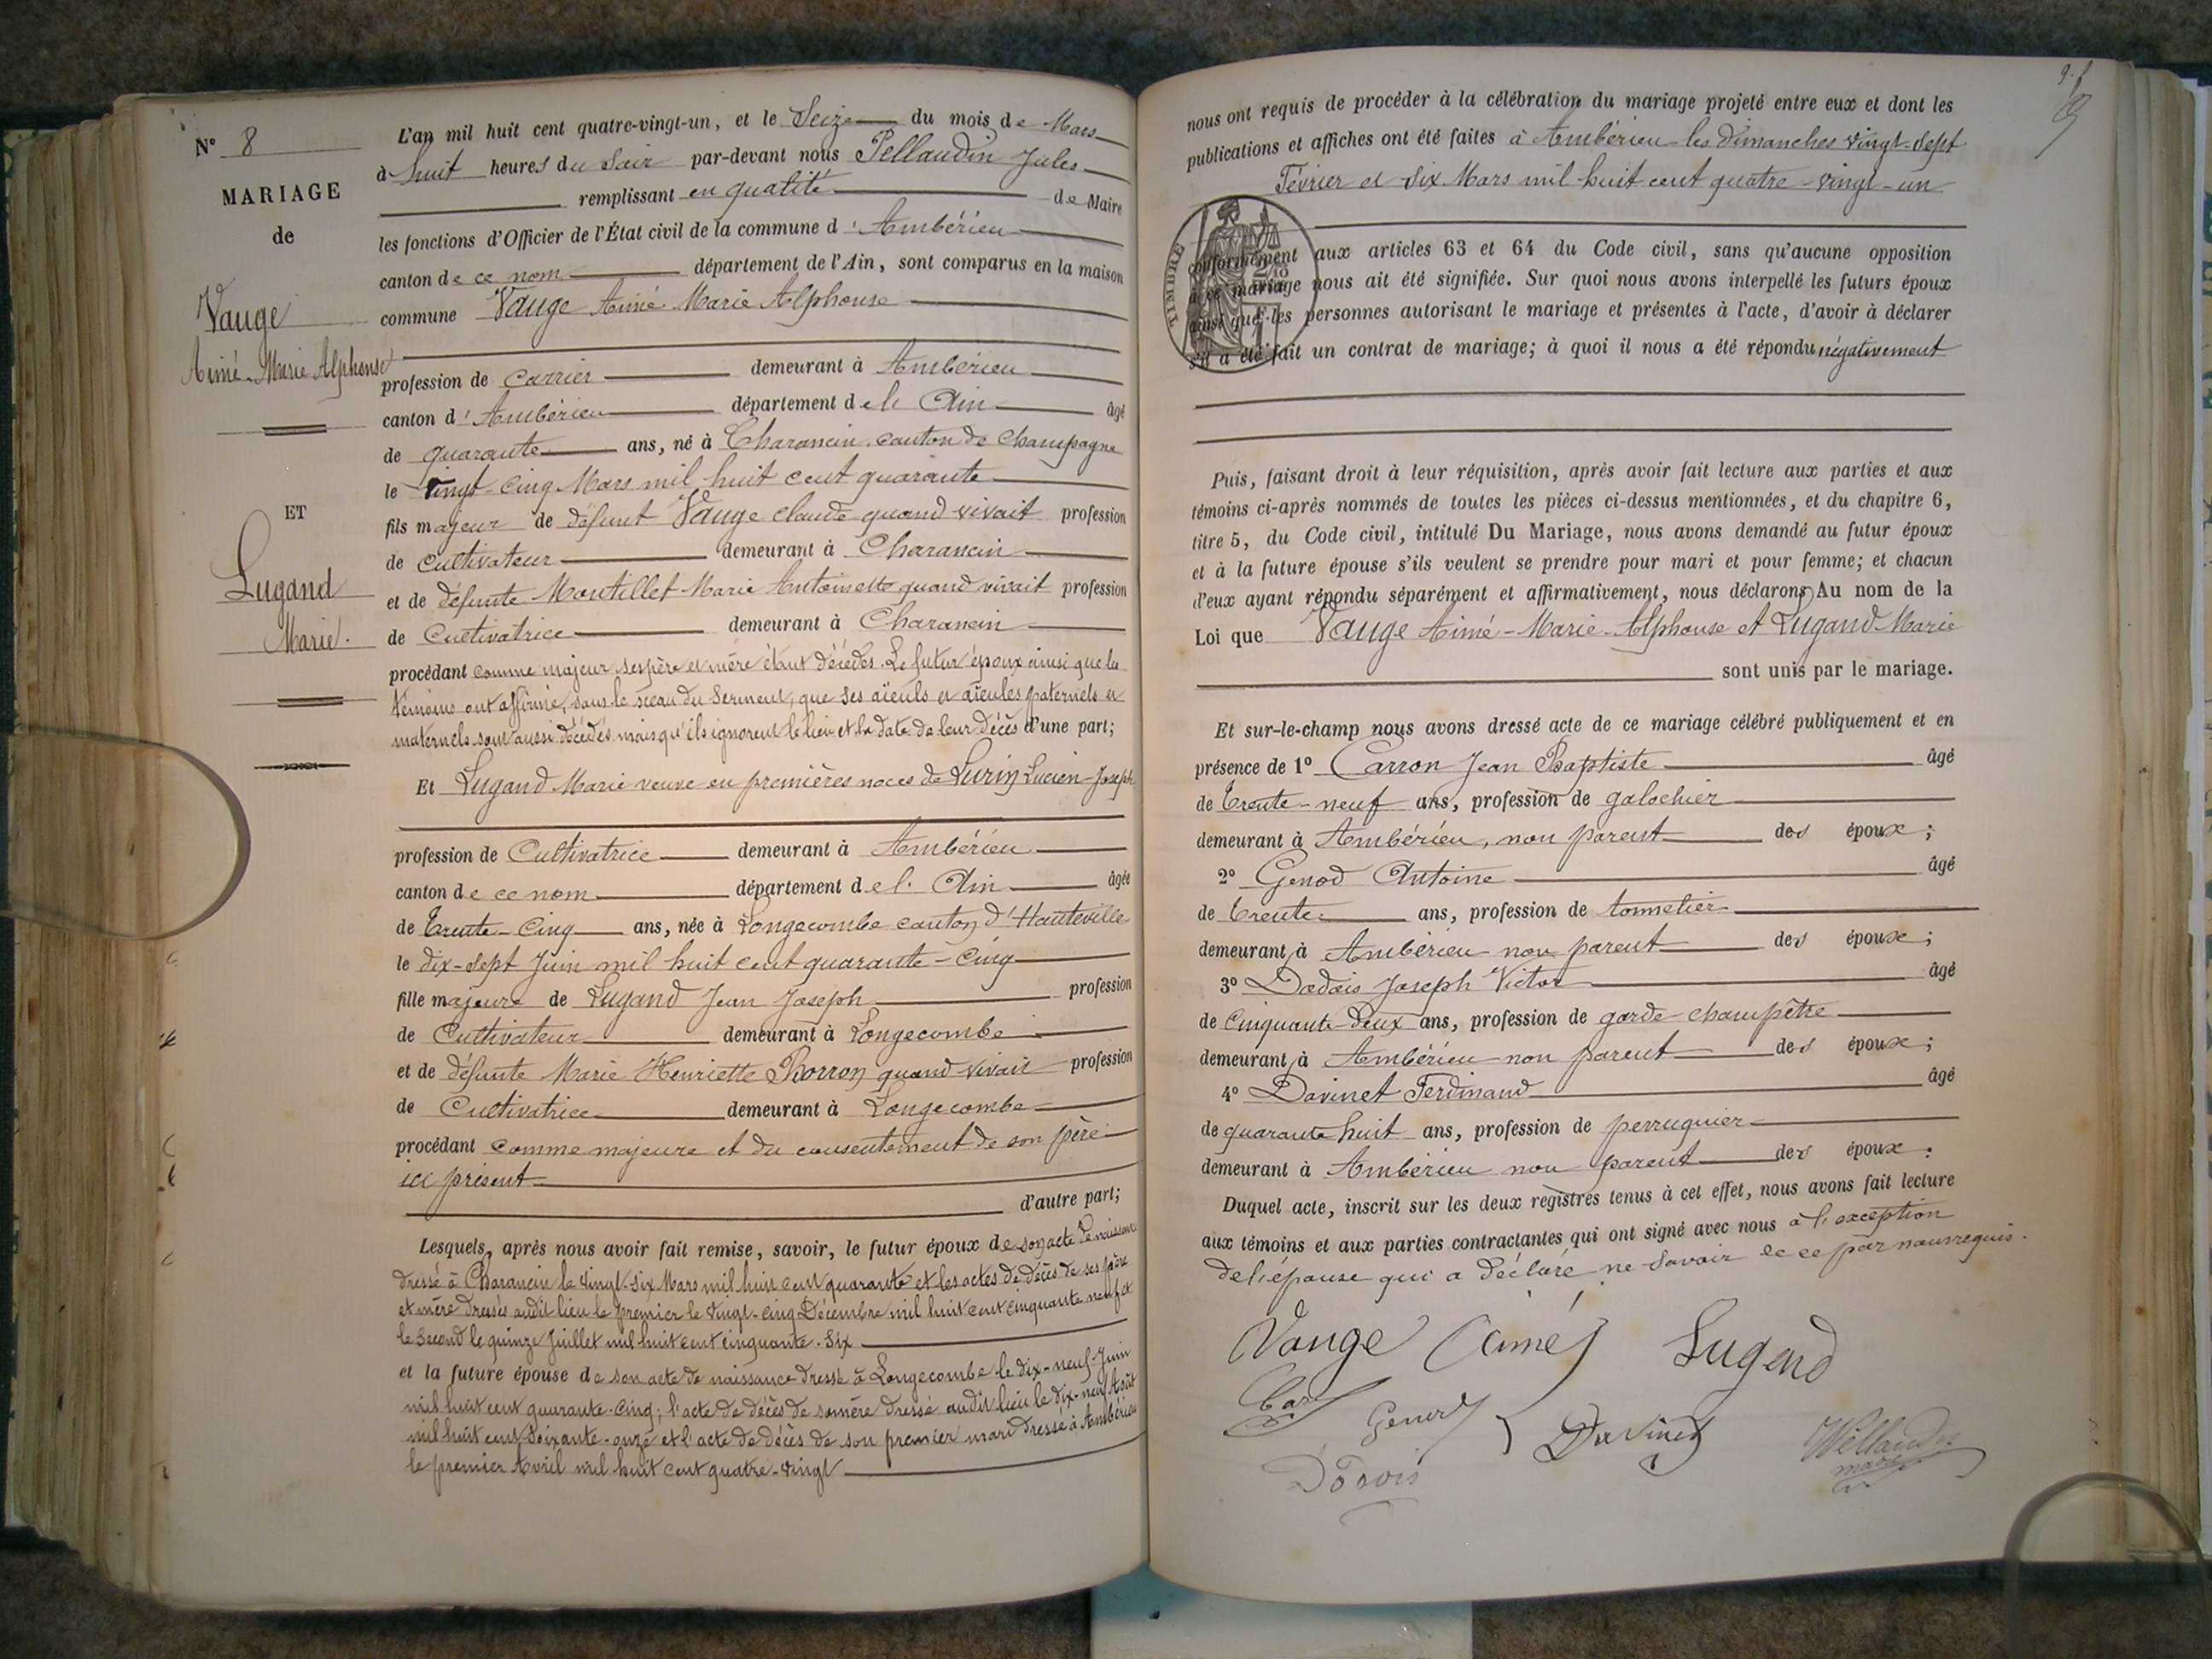 N° 8
MARIAGE
de
Vauge
Aimé-Marie Alphonse
ET
Lugand
Marie.
L'an mil huit cent quatre-vingt-un, et le Seize du mois de Mars
à huit heures du Soir par-devant nous Pellaudin Jules
remplissant en qualité de Maire
les fonctions d'Officier de l'État civil de la commune d'Ambérieu
canton de ce nom département de l'Ain, sont comparus en la maison
commune Vauge Aimé Marie Alphonse
profession de Carrier demeurant à Ambérieu
canton d'Ambérieu département de l'Ain âgé
de quarante ans, né à Charancin canton de Champagne
le vingt-cinq Mars mil huit cent quarante
fils majeur de défunt Vauge Claude quand vivait profession
de Cultivateur demeurant à Charancin
et de défunte Montillet Marie Antoinette quand vivait profession
de Cultivatrice demeurant à Charancin
procédant comme majeur ses père et mère étant décédés. Le futur époux ainsi que les
témoins ont affirmé, sous le sceau du Serment, que ses aïeuls et aïeules paternels et
maternels sont aussi décédés mais qu'ils ignorent le lieu et la date de leur décès d'une part;
Et Lugand Marie veuve en premières noces de Lurin Lucien-Joseph
profession de Cultivatrice demeurant à Ambérieu
canton de ce nom département de l'Ain âgée
de trente-cinq ans, née à Longecombe canton d'Hauteville
le dix-sept Juin mil huit cent quarante-cinq
fille majeure de Lugand Jean Joseph profession
de Cultivateur demeurant à Longecombe
et de défunte Marie Henriette Borron quand vivait profession
de Cultivatrice demeurant à Longecombe
procédant comme majeure et du consentement de son père
ici présent
d'autre part;
Lesquels, après nous avoir fait remise, savoir, le futur époux de son acte de naissance
dressé à Charancin le vingt-six Mars mil huit cent quarante et les actes de décès de ses père
et mère dressés audit lieu le premier le vingt-cinq Décembre mil huit cent cinquante neuf et
le second le quinze Juillet mil huit cent cinquante-six
et la future épouse de son acte de naissance dressé à Longecombe le dix-neuf Juin
mil huit cent quarante-cinq; l'acte de décès de sa mère dressé audit lieu le dix-neuf Août
mil huit cent soixante-onze et l'acte de décès de son premier mari dressé à Ambérieu
le premier Avril mil huit cent quatre-vingt
nous ont requis de procéder à la célébration du mariage projeté entre eux et dont les
publications et affiches ont été faites à Ambérieu les Dimanches vingt-sept
Février et six Mars mil huit cent quatre-vingt-un
TIMBRE
conformément aux articles 63 et 64 du Code civil, sans qu'aucune opposition
à ce mariage nous ait été signifiée. Sur quoi nous avons interpellé les futurs époux
ainsi que les personnes autorisant le mariage et présentes à l'acte, d'avoir à déclarer
s'il a été fait un contrat de mariage; à quoi il nous a été répondu négativement
Puis, faisant droit à leur réquisition, après avoir fait lecture aux parties et aux
témoins ci-après nommés de toutes les pièces ci-dessus mentionnées, et du chapitre 6,
titre 5, du Code civil, intitulé Du Mariage, nous avons demandé au futur époux
et à la future épouse s'ils veulent se prendre pour mari et pour femme; et chacun
d'eux ayant répondu séparément et affirmativement, nous déclarons Au nom de la
Loi que Vauge Aimé-Marie-Alphonse et Lugand Marie
sont unis par le mariage.
Et sur-le-champ nous avons dressé acte de ce mariage célébré publiquement et en
présence de 1° Carron Jean Baptiste âgé
de trente-neuf ans, profession de galochier
demeurant à Ambérieu, non parent des époux;
2° Genod Antoine âgé
de trente ans, profession de tonnelier
demeurant à Ambérieu non parent des époux;
3° Dadois Joseph Victor âgé
de Cinquante-deux ans, profession de garde-champêtre
demeurant à Ambérieu non parent des époux;
4° Davinet Ferdinand âgé
de quarante huit ans, profession de perruquier
demeurant à Ambérieu non parent des époux.
Duquel acte, inscrit sur les deux registres tenus à cet effet, nous avons fait lecture
aux témoins et aux parties contractantes qui ont signé avec nous à l'exception
de l'épouse qui a déclaré ne savoir le ce par nous requis.
Vauge Aimé Lugand
Genod Davinet